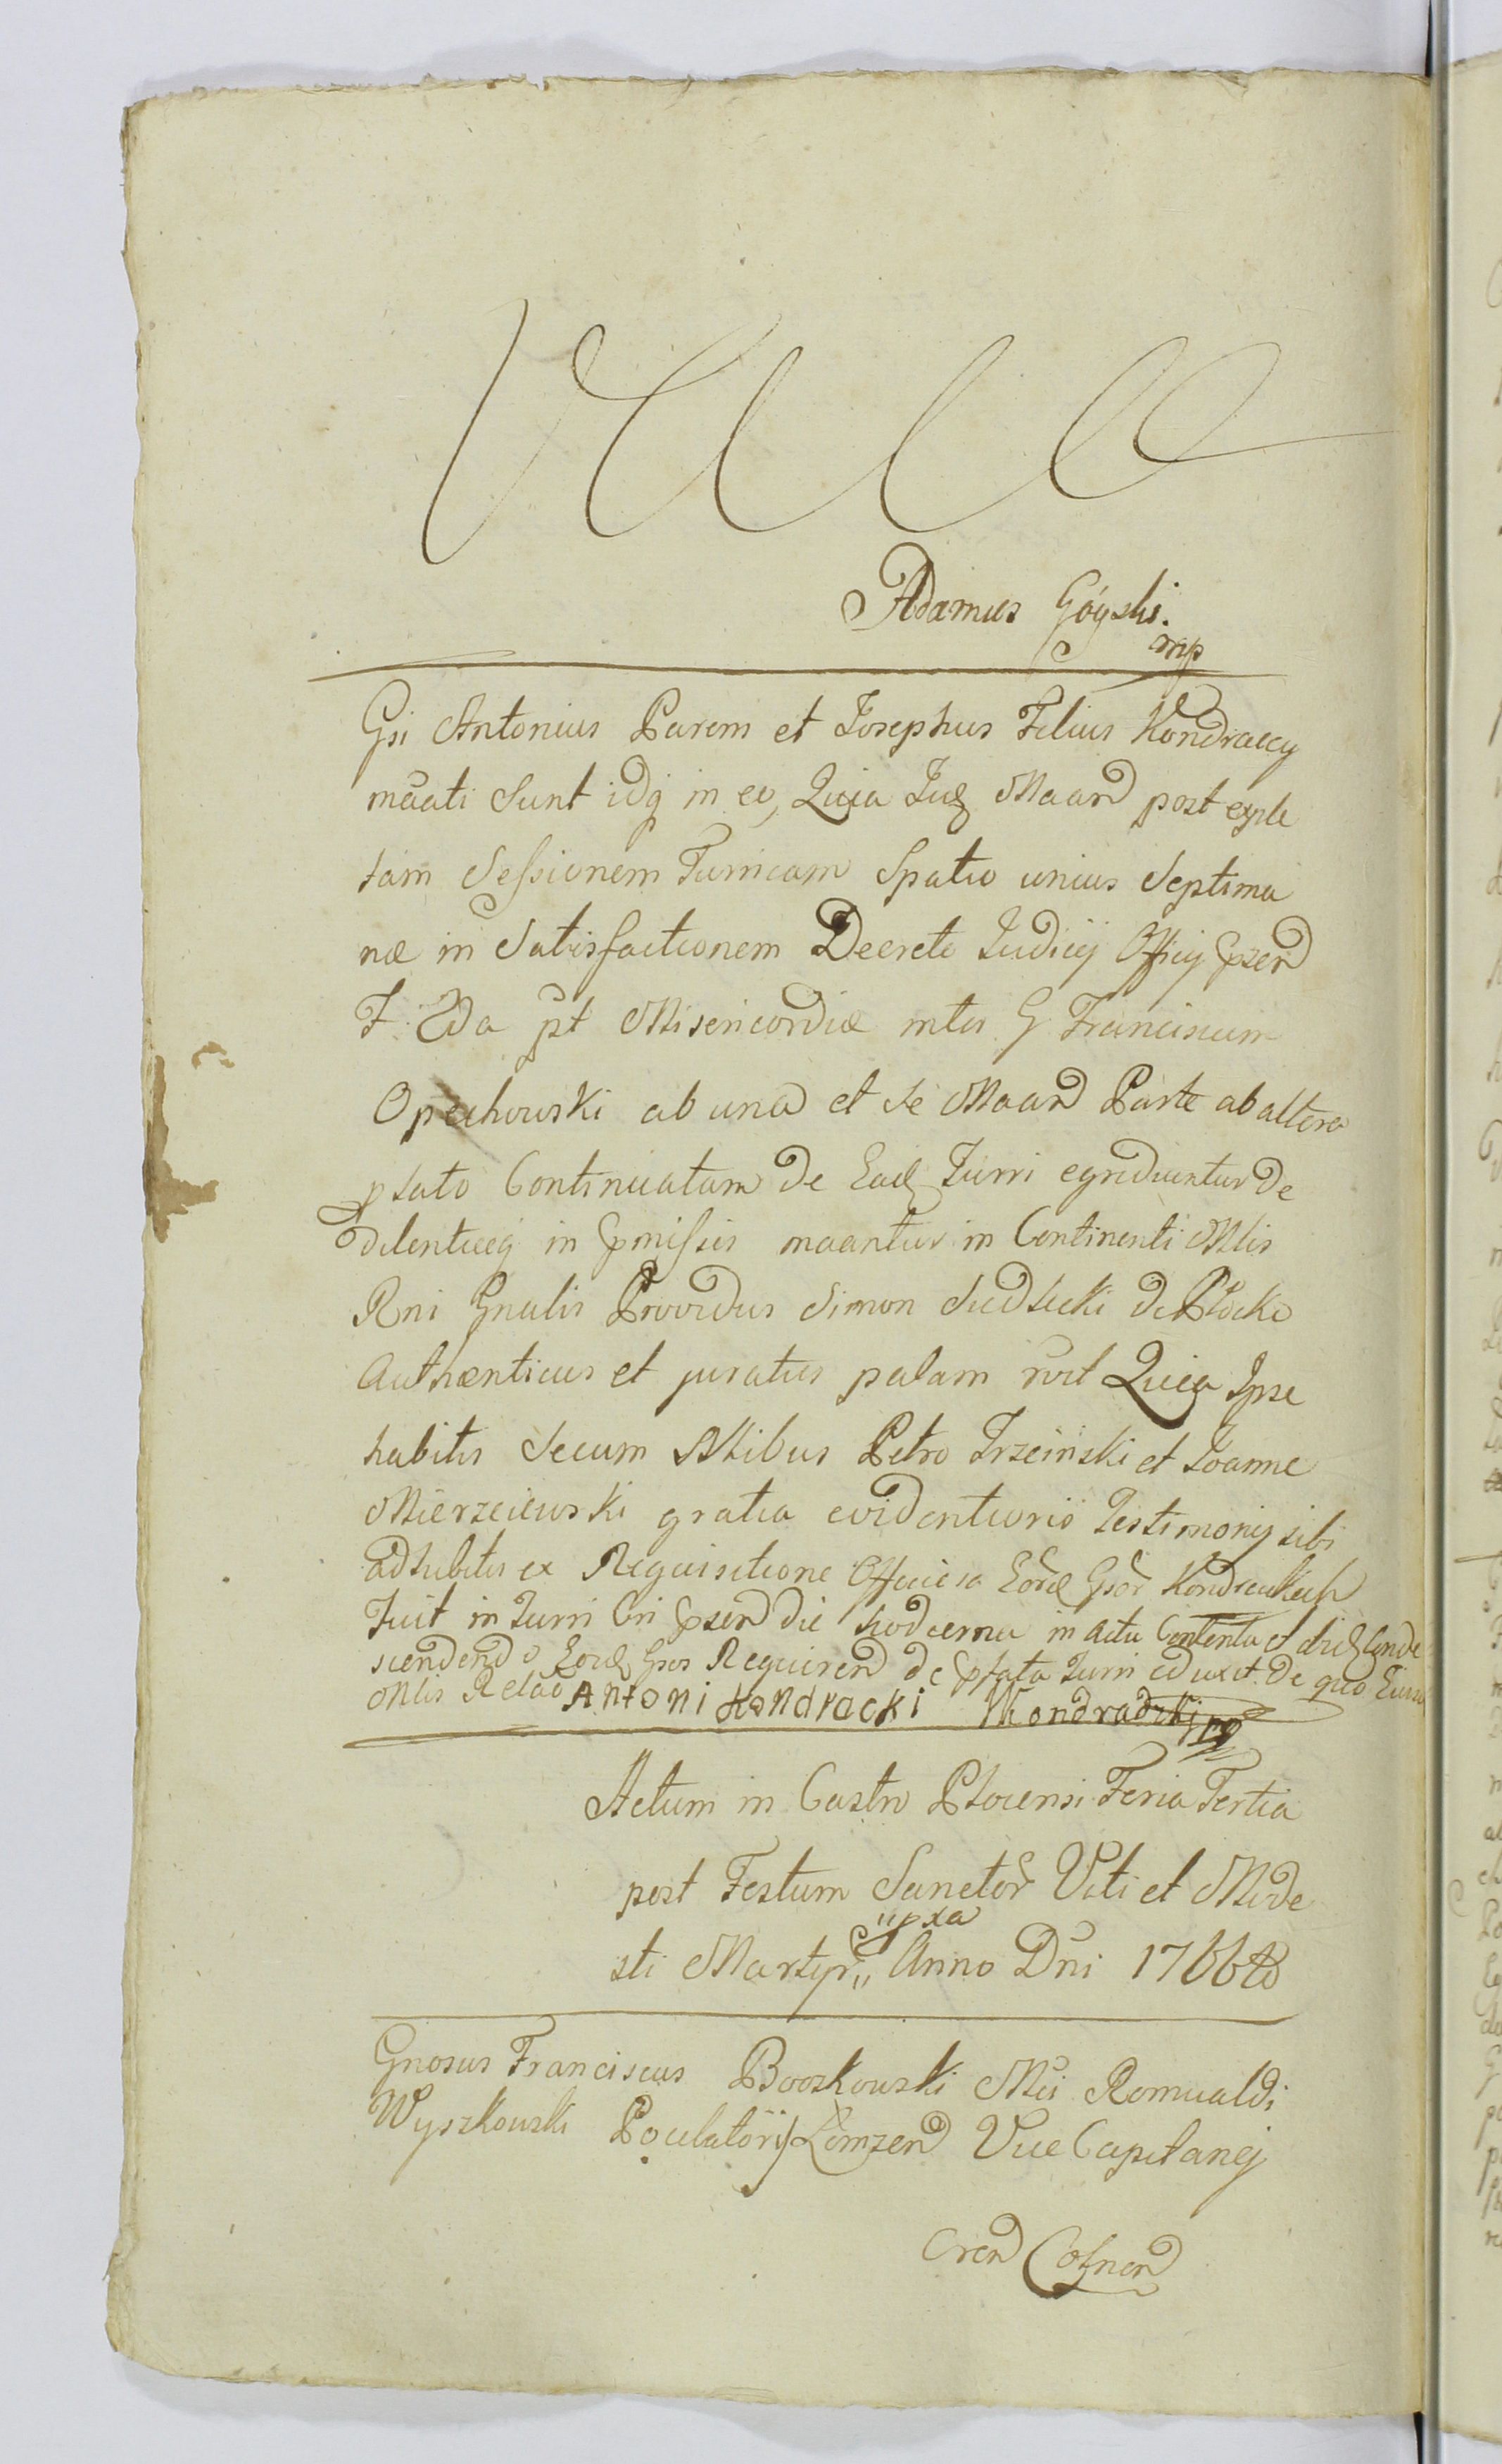 Adamus Góyski.
mp
Gsi Antonius Parens et Josephus Filius Kondraccy
maati Sunt idq in eo, Quia Iid Maand post exple
tam Sessionem Turricam Spatio unius Septima
næ in Satisfactionem Decreto Judicij Officij psen
F. 2da pt Misericordiæ inter G Franciscum
Opechowski ab una et se Maand Parte ab altera
plato Continuatam de Ead Turri egrediuntur De
in pmissis maantur in Continenti Mlis
Rni Gnalis Providus Simon Siedlecki de Płocko
Authenticus et juratus palam rvit Quia Ipse
habitis Secum Nbibus Petro Trzcinski et Joanne
Mierzeiewski gratia evidentioris Testimonij sibi
adhibitis ex Requisitione Officiosa Eord Gsor Kondrackich
Fuit in Turri Cri psen die hodierna in actu Contento et ibid Conde
scendend Eosd Gsos Requiren de pfata Turri eduxit. De quo Eiusd
Mlis Relao Antoni Kondracki JKondradzki mp
Actum in Castro Plocensi Feria Tertia
post Festum Sanctor Viti et Mode
sti Martyr " Anno Dni 1766to
" pxa
Gnosus Franciscus Boozkowski Mci Romualdi
Wyszkowski Poculatoris Lomzen Vice Capitanej
Cren Cofnen